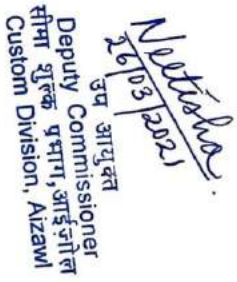 Neetisha.
26/03/2021
उप आयुक्त
Deputy Commissioner
सीमा शुल्क प्रभाग, आईजोल
Custom Division, Aizawl